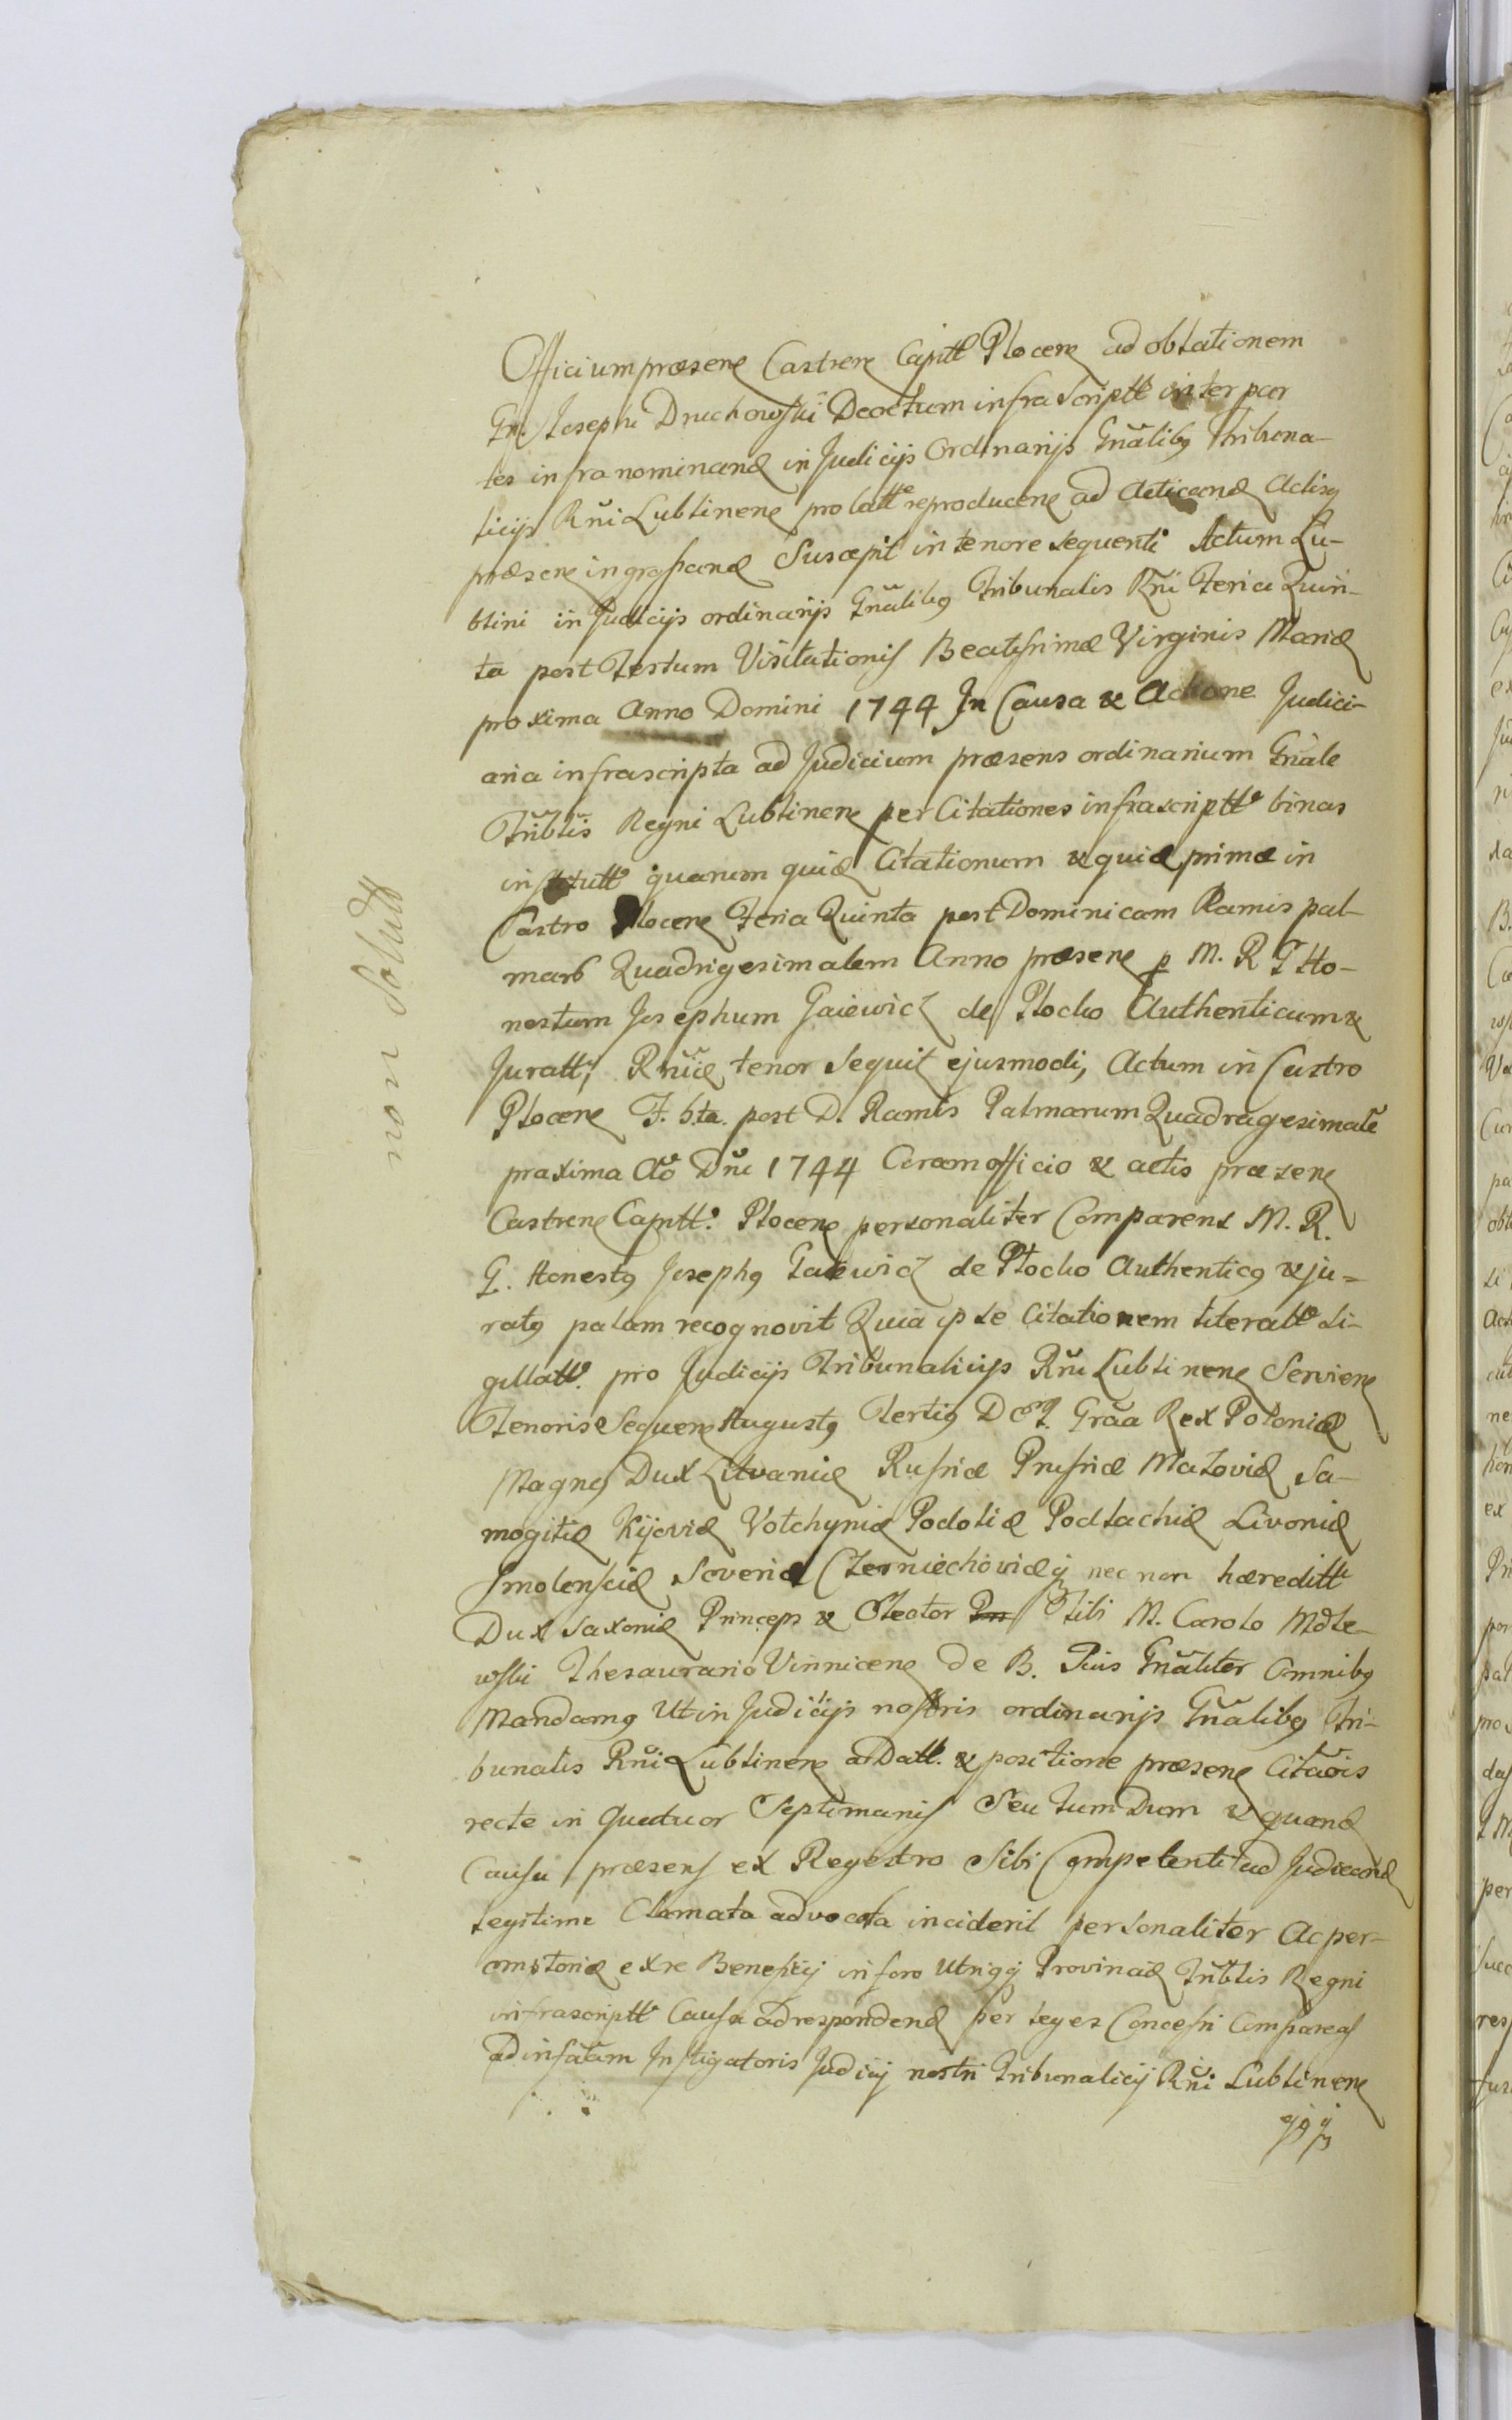 Officium præsene Castrene Capitt Plocene ad oblationem
Gn. Josephi Druchowski Decretum infra Scriptt inter par
tes infra nominand in Judicijs Ordinarijs Gnalibq Tribuna-
licijs Rñi Lublinene prolatte reproducene ad Acticand Actisq
præsene ingrossand Suscepit in tenore sequenti Actum Lu-
blini in Judicijs ordinarijs Gnalibq Tribunalis Rñi Feria Quin-
ta post Festum Visitationis Beatissimæ Virginis Mariæ
proxima Anno Domini 1744 In Causa & Actione Judici-
aria infrascripta ad Judicium præsens ordinarium Gñale
Tribtis Regni Lublinene per Citationes infrascriptte binas
institutte quarum quid Citationum & quid primæ in
Castro Plocene Feria Quinta post Dominicam Ramis pal-
mars Quadrigesimalem Anno præsene p M. R G Ho-
nestum Josephum Gaiewicz de Plocko Authenticum &
Juratt, Rñiæ tenor Sequit ejusmodi, Actum in Castro
Plocene F. 5.ta. post D. Ramis Palmarum Quadragesimale
praxima Aõ Dñi 1744 Coram officio & actis præsene
Castrene Capitt. Plocene personaliter Comparens M. R.
G. Honestq Josephq Gaiewicz de Plocko Authenticq & ju-
ratq palam recognovit Quia ipse Citationem literatte Si-
gillatte. pro Judicijs Tribunalicijs Rñi Lublinene Serviene
Tenoris Sequene Augustq Tertiq D G. Graa Rex Poloniæ
Magnq Dux Litvaniæ Russiæ Prussiæ Mazoviæ Sa-
mogitiæ Kijoviæ Volchyniæ Podoliæ Podlachiæ Livoniæ
Smolensciæ Severiæ Czerniechoviæq nec non hæreditt
Dux Saxoniæ Princeps & Elector Tibi M. Carolo Mdle-
wski Thesaurario Vinnicene de B. Tuis Gnaliter Omnibq
Mandamq Ut in Judicijs nostris ordinarijs Gñalibq Tri-
bunalis Rñi Lublinene a Datt. & positione præsene Citaois
recte in Quatuor Septimanis Seu tum Dum & quand
Causa præsens ex Regestro Sibi Competenti ad Judicand
legitime Clamata advocata inciderit personaliter Ac per-
emtorie ex re Beneficij in foro Utriqq Provinciæ Tribtis Regni
infrascriptt Causa ad respondend per leges Concessi Compareas
Ad instam Instigatoris Judicij nostri Tribunalicij Rñi Lublinene
ejqq
non Solutt